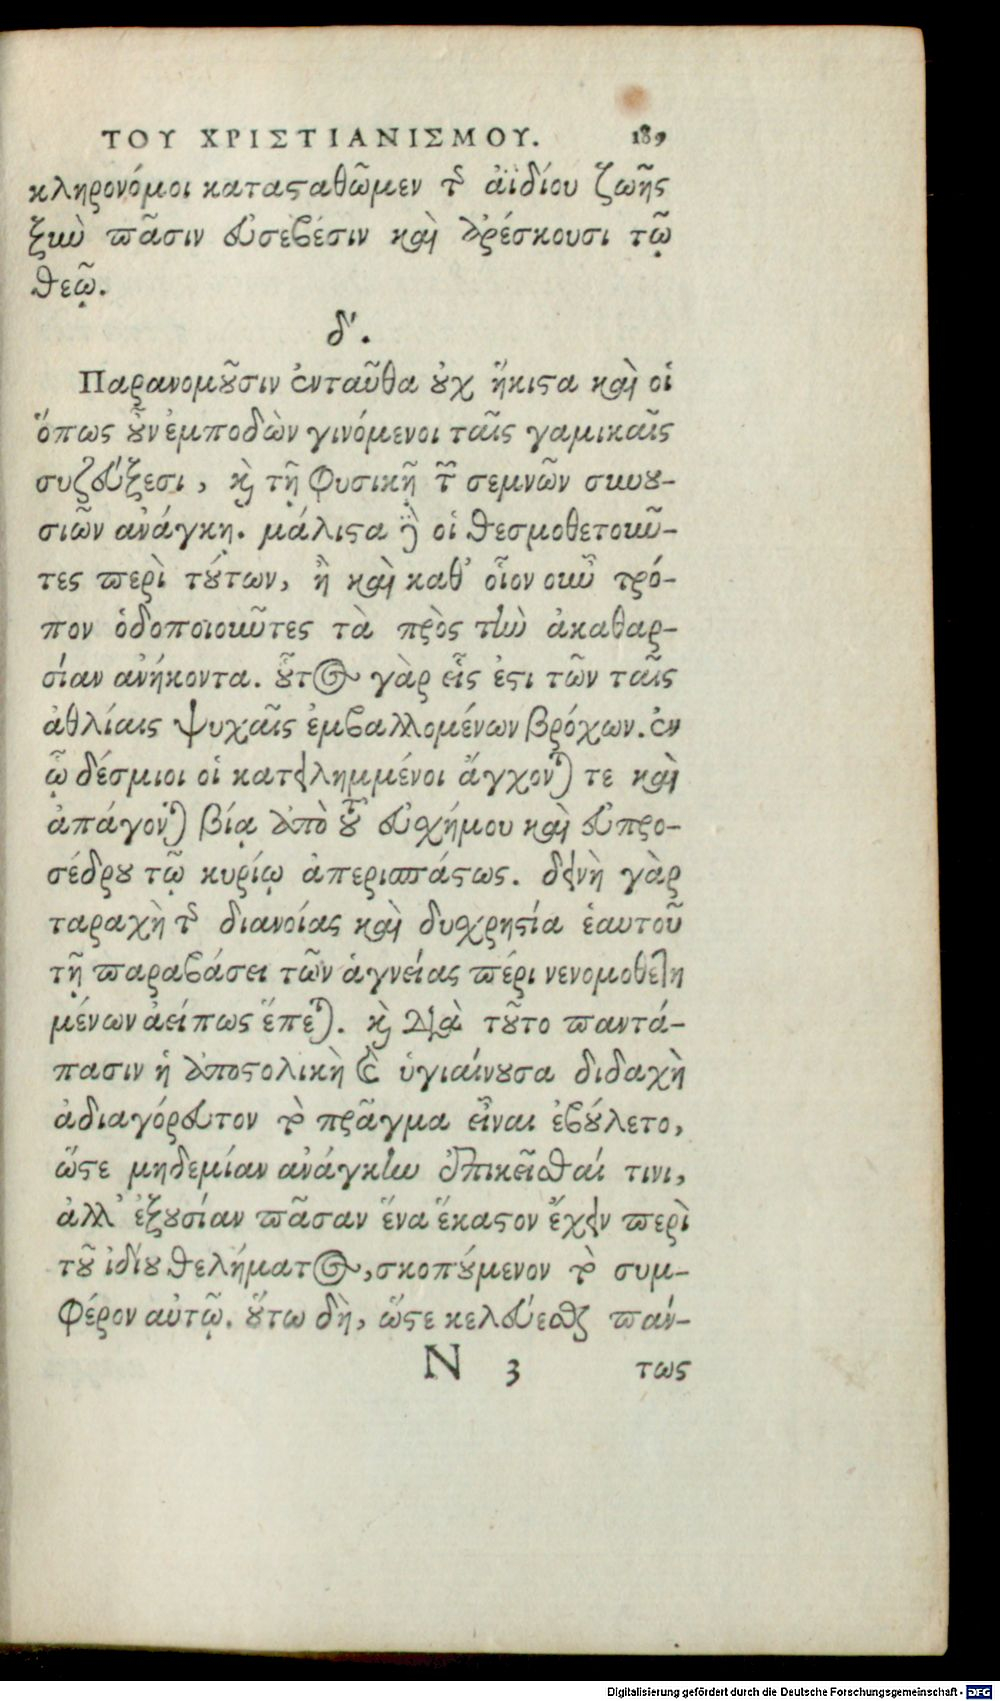 ΤΟΥ ΧΡΙΣΤΙΑΝΙΣΜΟΥ. 189
κληρονόμοι καταϛαθῶμεν τῆς ἀϊδίου ζωῆς
ξὺν πᾶσιν εὐσεβέσιν καὶ ἀρέσκουσι τῷ
θεῷ.
δ'.
Παρανομοῦσιν ἐνταῦθα οὐχ ἥκιϛα καὶ οἱ
ὅπως οὖν ἐμποδὼν γινόμενοι ταῖς γαμικαῖς
συζεύξεσι, καὶ τῇ φυσικῇ τῶν σεμνῶν συνου-
σιῶν ἀνάγκῃ. μάλιϛα δὲ οἱ θεσμοθετοῦν-
τες περὶ τούτων, ἢ καὶ καθ' οἷον οὖν τρό-
πον ὁδοποιοῦντες τὰ πρὸς τὴν ἀκαθαρ-
σίαν ἀνήκοντα. οὗτος γὰρ εἷς ἐϛι τῶν ταῖς
ἀθλίαις ψυχαῖς ἐμβαλλομένων βρόχων. ἐν
ᾧ δέσμιοι οἱ κατειλημμένοι ἄγχονταί τε καὶ
ἀπάγονται βίᾳ ἀπὸ τοῦ εὐσχήμου καὶ εὐπρο-
σέδρου τῷ κυρίῳ ἀπερισπάϛως. δεινὴ γὰρ
ταραχὴ τῆς διανοίας καὶ δυσχρηϛία ἑαυτοῦ
τῇ παραβάσει τῶν ἁγνείας πέρι νενομοθετη
μένων ἀεί πως ἕπεται. καὶ διὰ τοῦτο παντά-
πασιν ἡ ἀποϛολικὴ καὶ ὑγιαίνουσα διδαχὴ
ἀδιαγόρευτον τὸ πρᾶγμα εἶναι ἐβούλετο,
ὥϛε μηδεμίαν ἀνάγκην ἐπικεῖσθαί τινι,
ἀλλ' ἐξουσίαν πᾶσαν ἕνα ἕκαϛον ἔχειν περὶ
τοῦ ἰδίου θελήματος, σκοπούμενον τὸ συμ-
φέρον αὐτῷ. οὕτω δὴ, ὥϛε κελεύεσθαι πάν-
N 3 τως
Digitalisierung gefördert durch die Deutsche Forschungsgemeinschaft - DFG